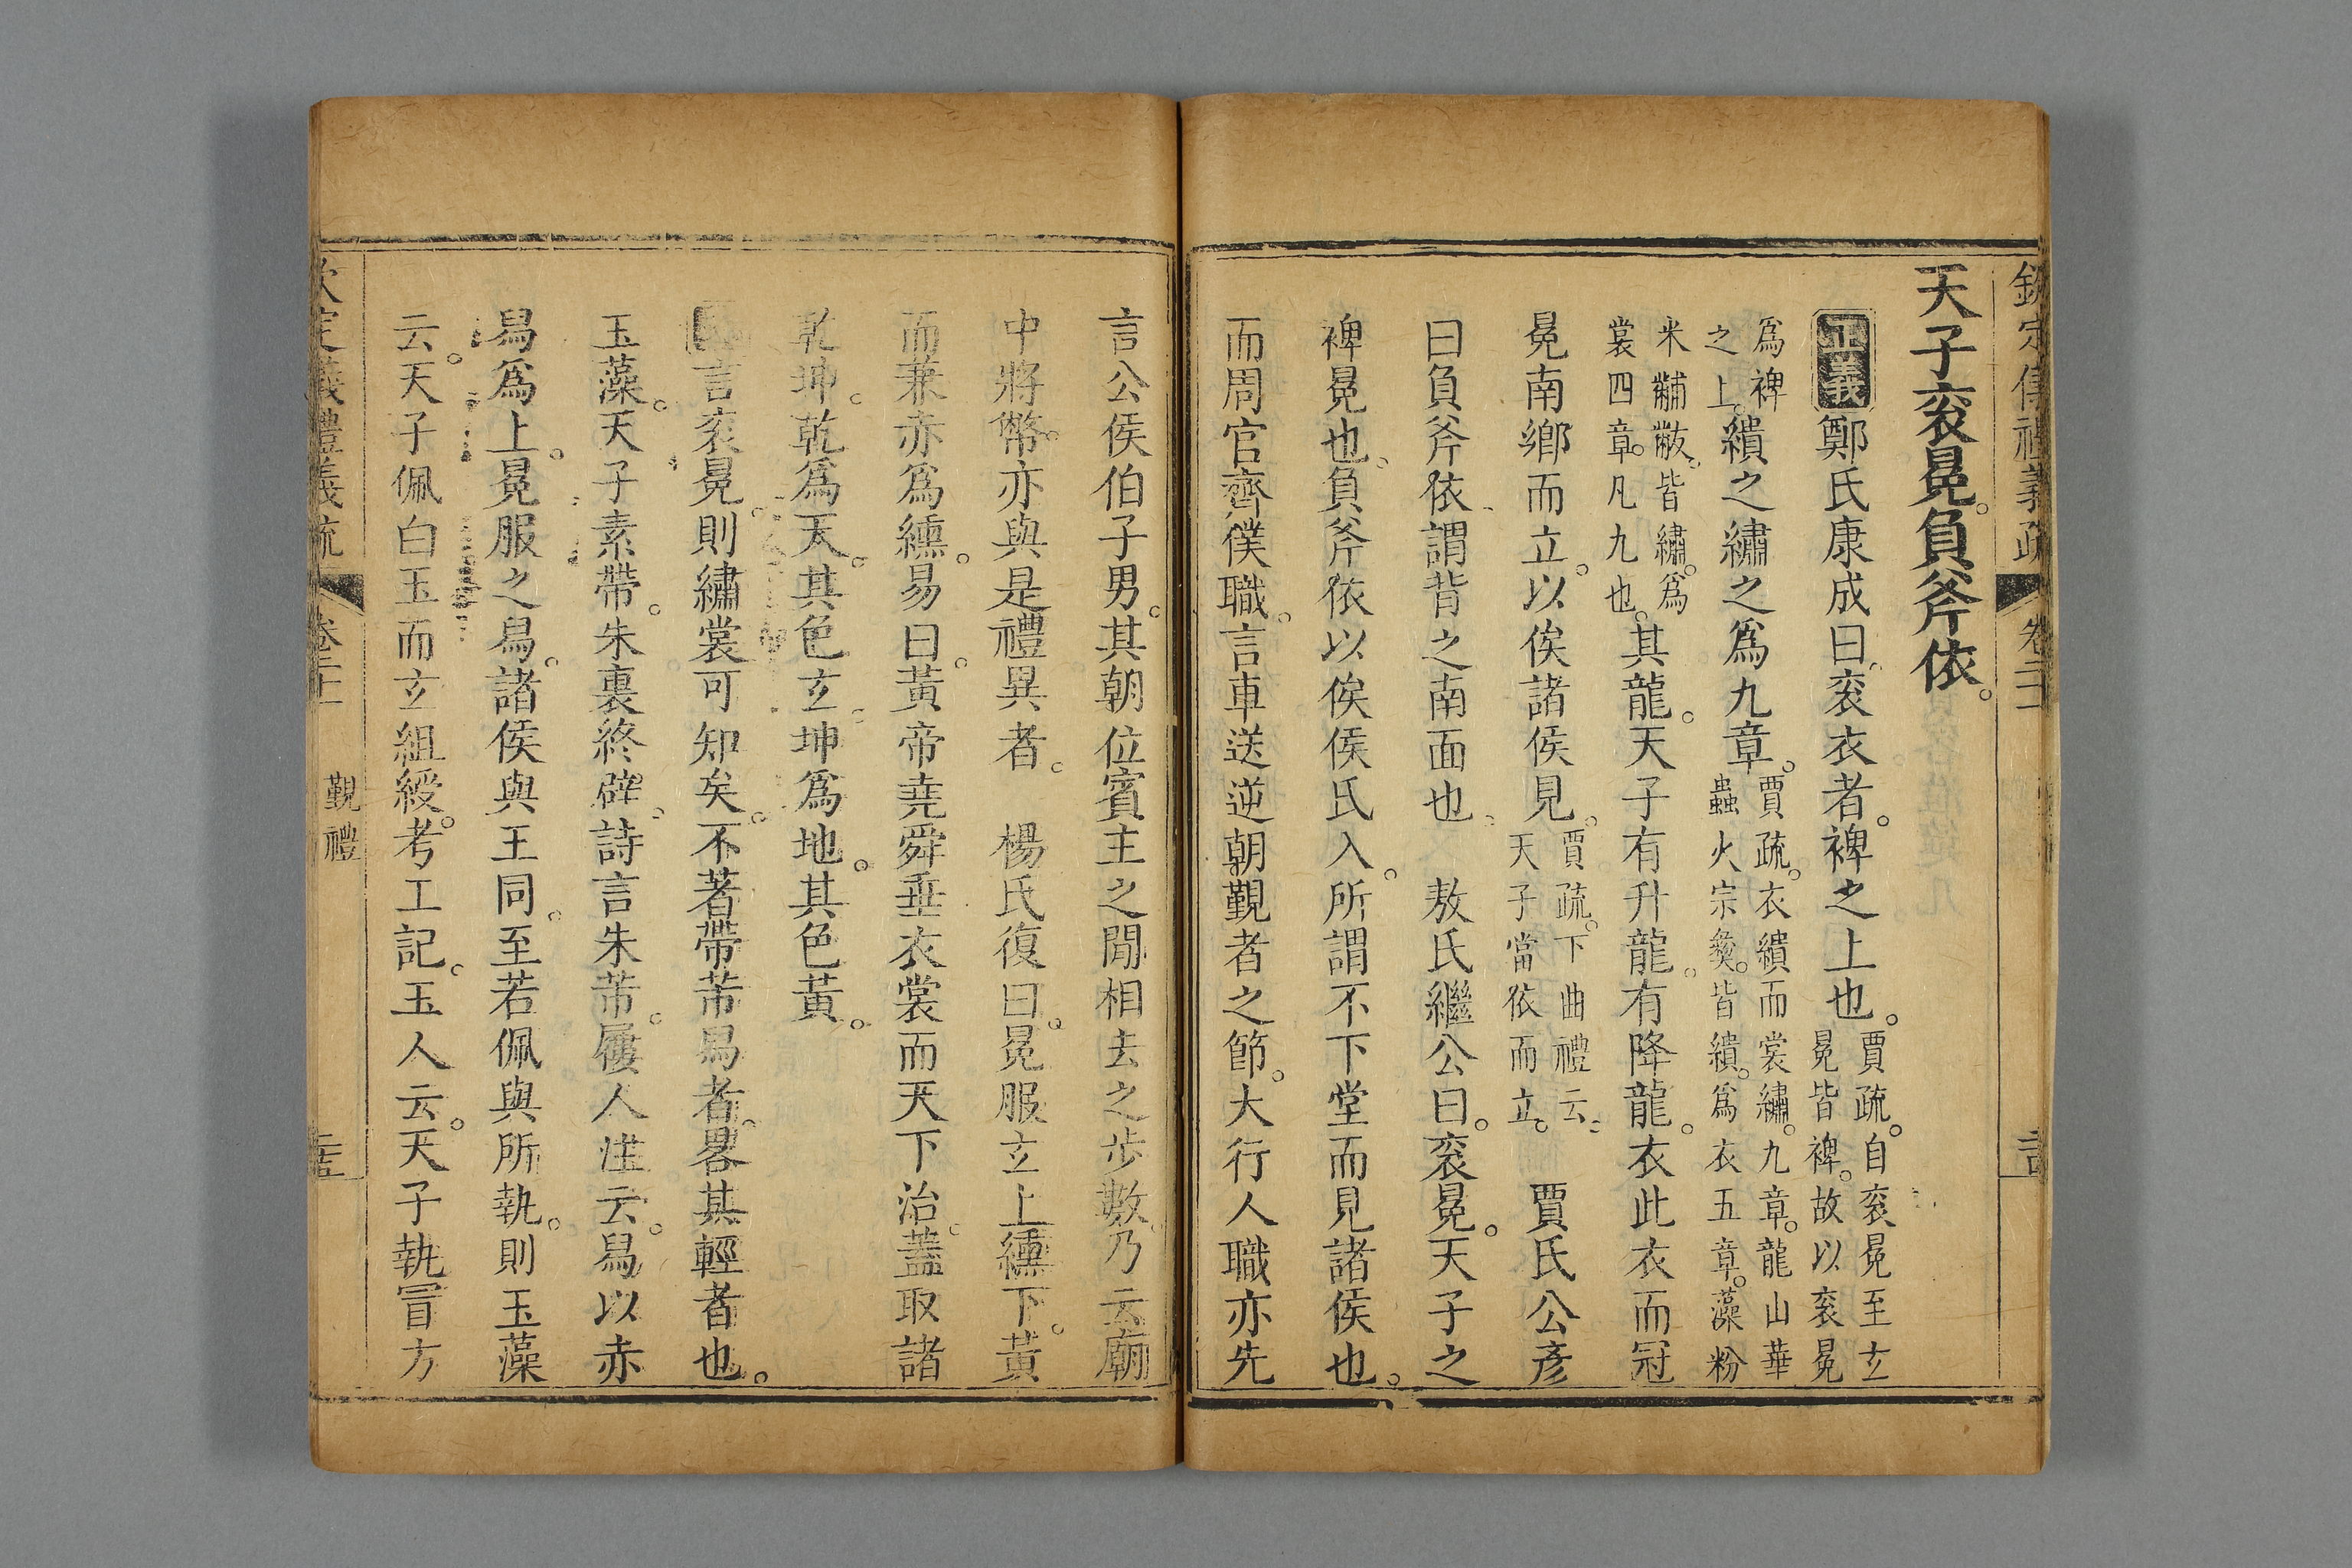 天子衮冕。負斧依。
正義鄭氏康成曰。衮衣者。裨之上也。賈疏。自衮冕至玄冕皆裨。故以衮冕
爲裨之上。繢之繡之爲九章。賈疏。衣繢而裳繡。九章。龍山華蟲火宗彝。皆繢。爲衣五章。藻粉
米黼黻。皆繡。爲裳四章。凡九也。其龍。天子有升龍。有降龍。衣此衣而冠
冕南鄉而立。以俟諸侯見。賈疏。下曲禮云。天子當依而立。 賈氏公彥
曰負斧依。謂背之南面也。 敖氏繼公曰。衮冕。天子之
裨冕也。負斧依以俟侯氏入。所謂不下堂而見諸侯也。
而周官齊僕職。言車送逆朝覲者之節。大行人職亦先
言公侯伯子男。其朝位賓主之間相去之步數。乃云廟
中將幣。亦與是禮異者。 楊氏復曰。冕服玄上纁下。黃
而兼赤爲纁。易曰。黃帝堯舜垂衣裳而天下治。蓋取諸
乾坤。乾爲天。其色玄。坤爲地。其色黃。
言衮冕。則繡裳可知矣。不著帶芾舄者。畧其輕者也。
玉藻。天子素帶。朱裏終辟。詩言朱芾。屨人注云。舄以赤
舄爲上。冕服之舄。諸侯與王同。至若佩與所執。則玉藻
云。天子佩白玉而玄組綬。考工記。玉人云。天子執冒方
欽定義禮義疏 卷二十 覲禮